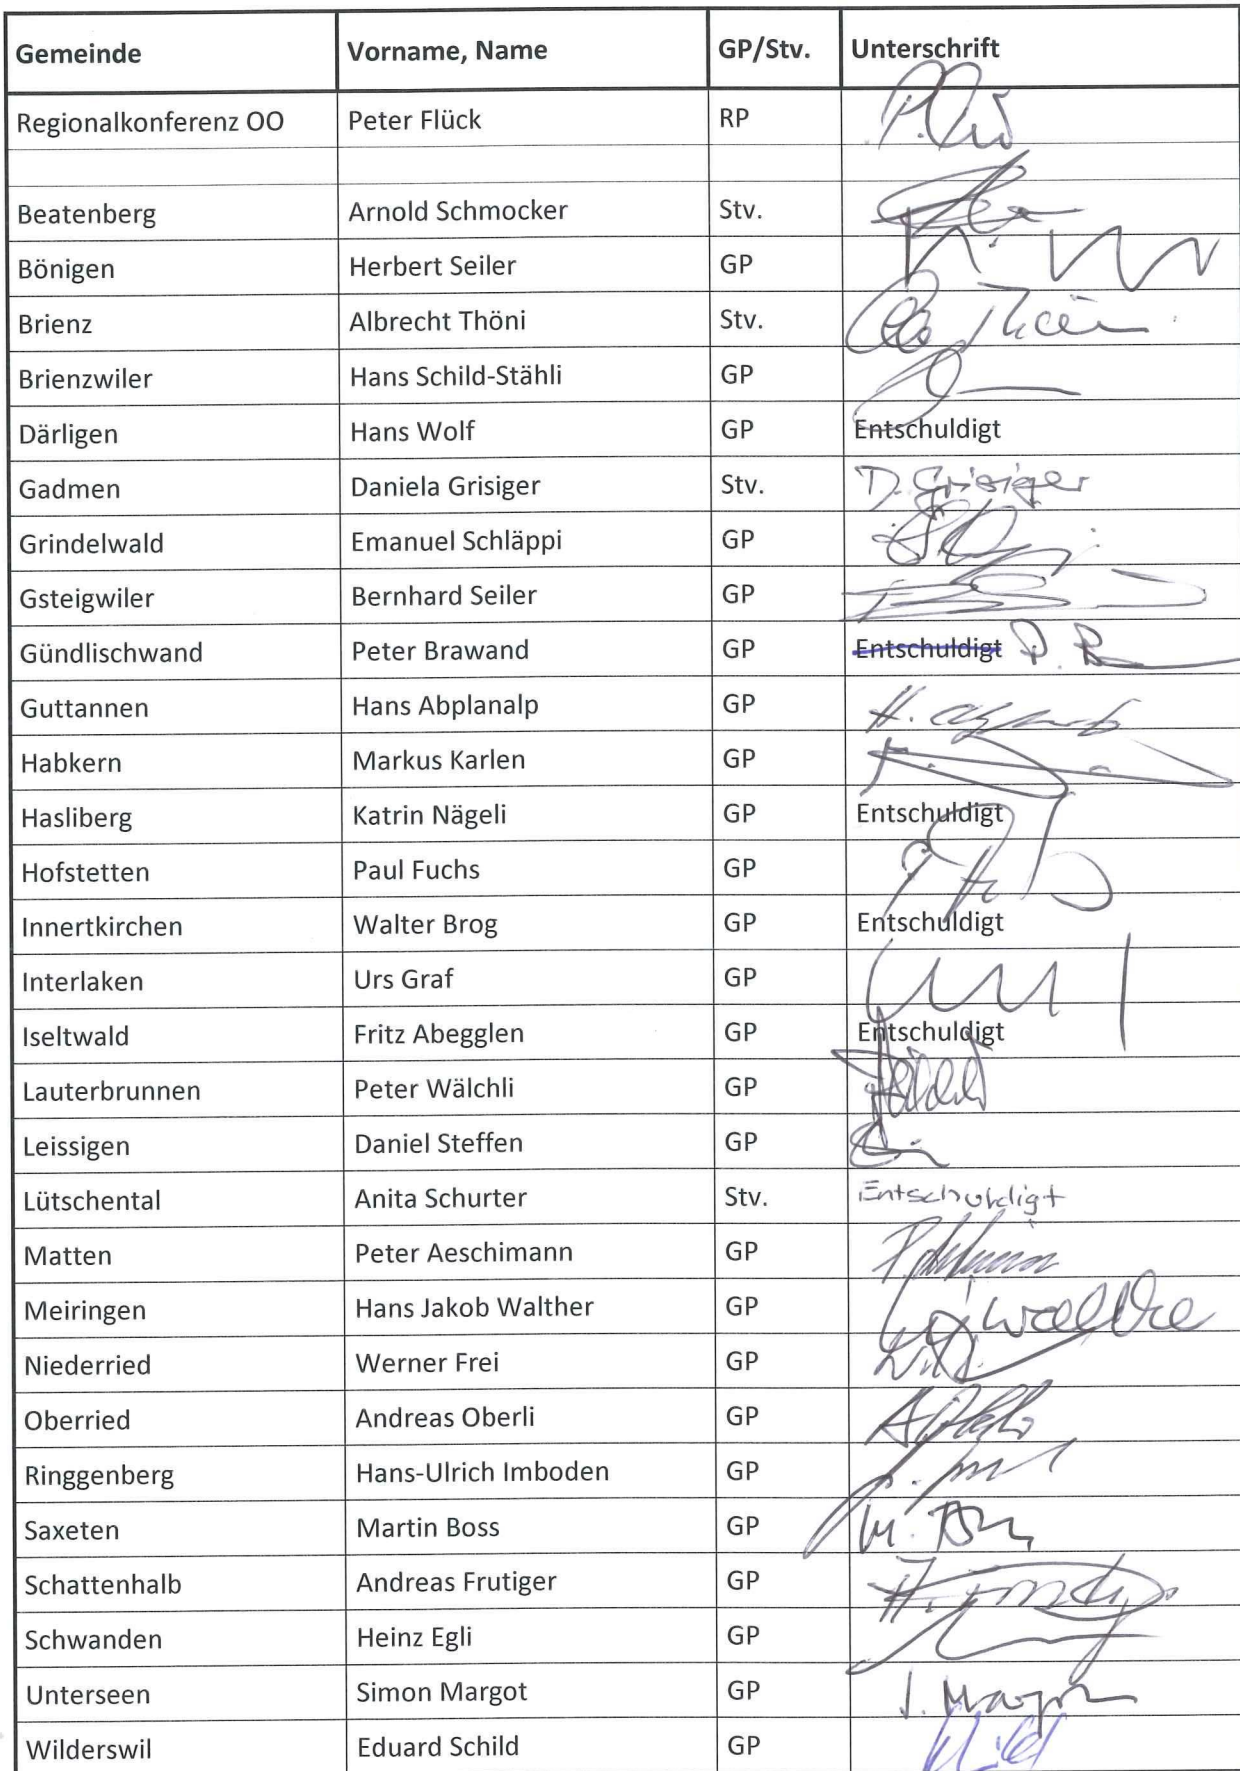 Gemeinde Vorname, Name GP/Stv. Unterschrift
Regionalkonferenz OO Peter Flück RP
Beatenberg Arnold Schmocker Stv.
Bönigen Herbert Seiler GP
Brienz Albrecht Thöni Stv.
Brienzwiler Hans Schild-Stähli GP
Därligen Hans Wolf GP Entschuldigt
Gadmen Daniela Grisiger Stv. D. Grisiger
Grindelwald Emanuel Schläppi GP
Gsteigwiler Bernhard Seiler GP
Gündlischwand Peter Brawand GP Entschuldigt P. B
Guttannen Hans Abplanalp GP
Habkern Markus Karlen GP
Hasliberg Katrin Nägeli GP Entschuldigt
Hofstetten Paul Fuchs GP
Innertkirchen Walter Brog GP Entschuldigt
Interlaken Urs Graf GP
Iseltwald Fritz Abegglen GP Entschuldigt
Lauterbrunnen Peter Wälchli GP
Leissigen Daniel Steffen GP
Lütschental Anita Schurter Stv. Entschuldigt
Matten Peter Aeschimann GP
Meiringen Hans Jakob Walther GP
Niederried Werner Frei GP
Oberried Andreas Oberli GP
Ringgenberg Hans-Ulrich Imboden GP
Saxeten Martin Boss GP
Schattenhalb Andreas Frutiger GP
Schwanden Heinz Egli GP
Unterseen Simon Margot GP
Wilderswil Eduard Schild GP